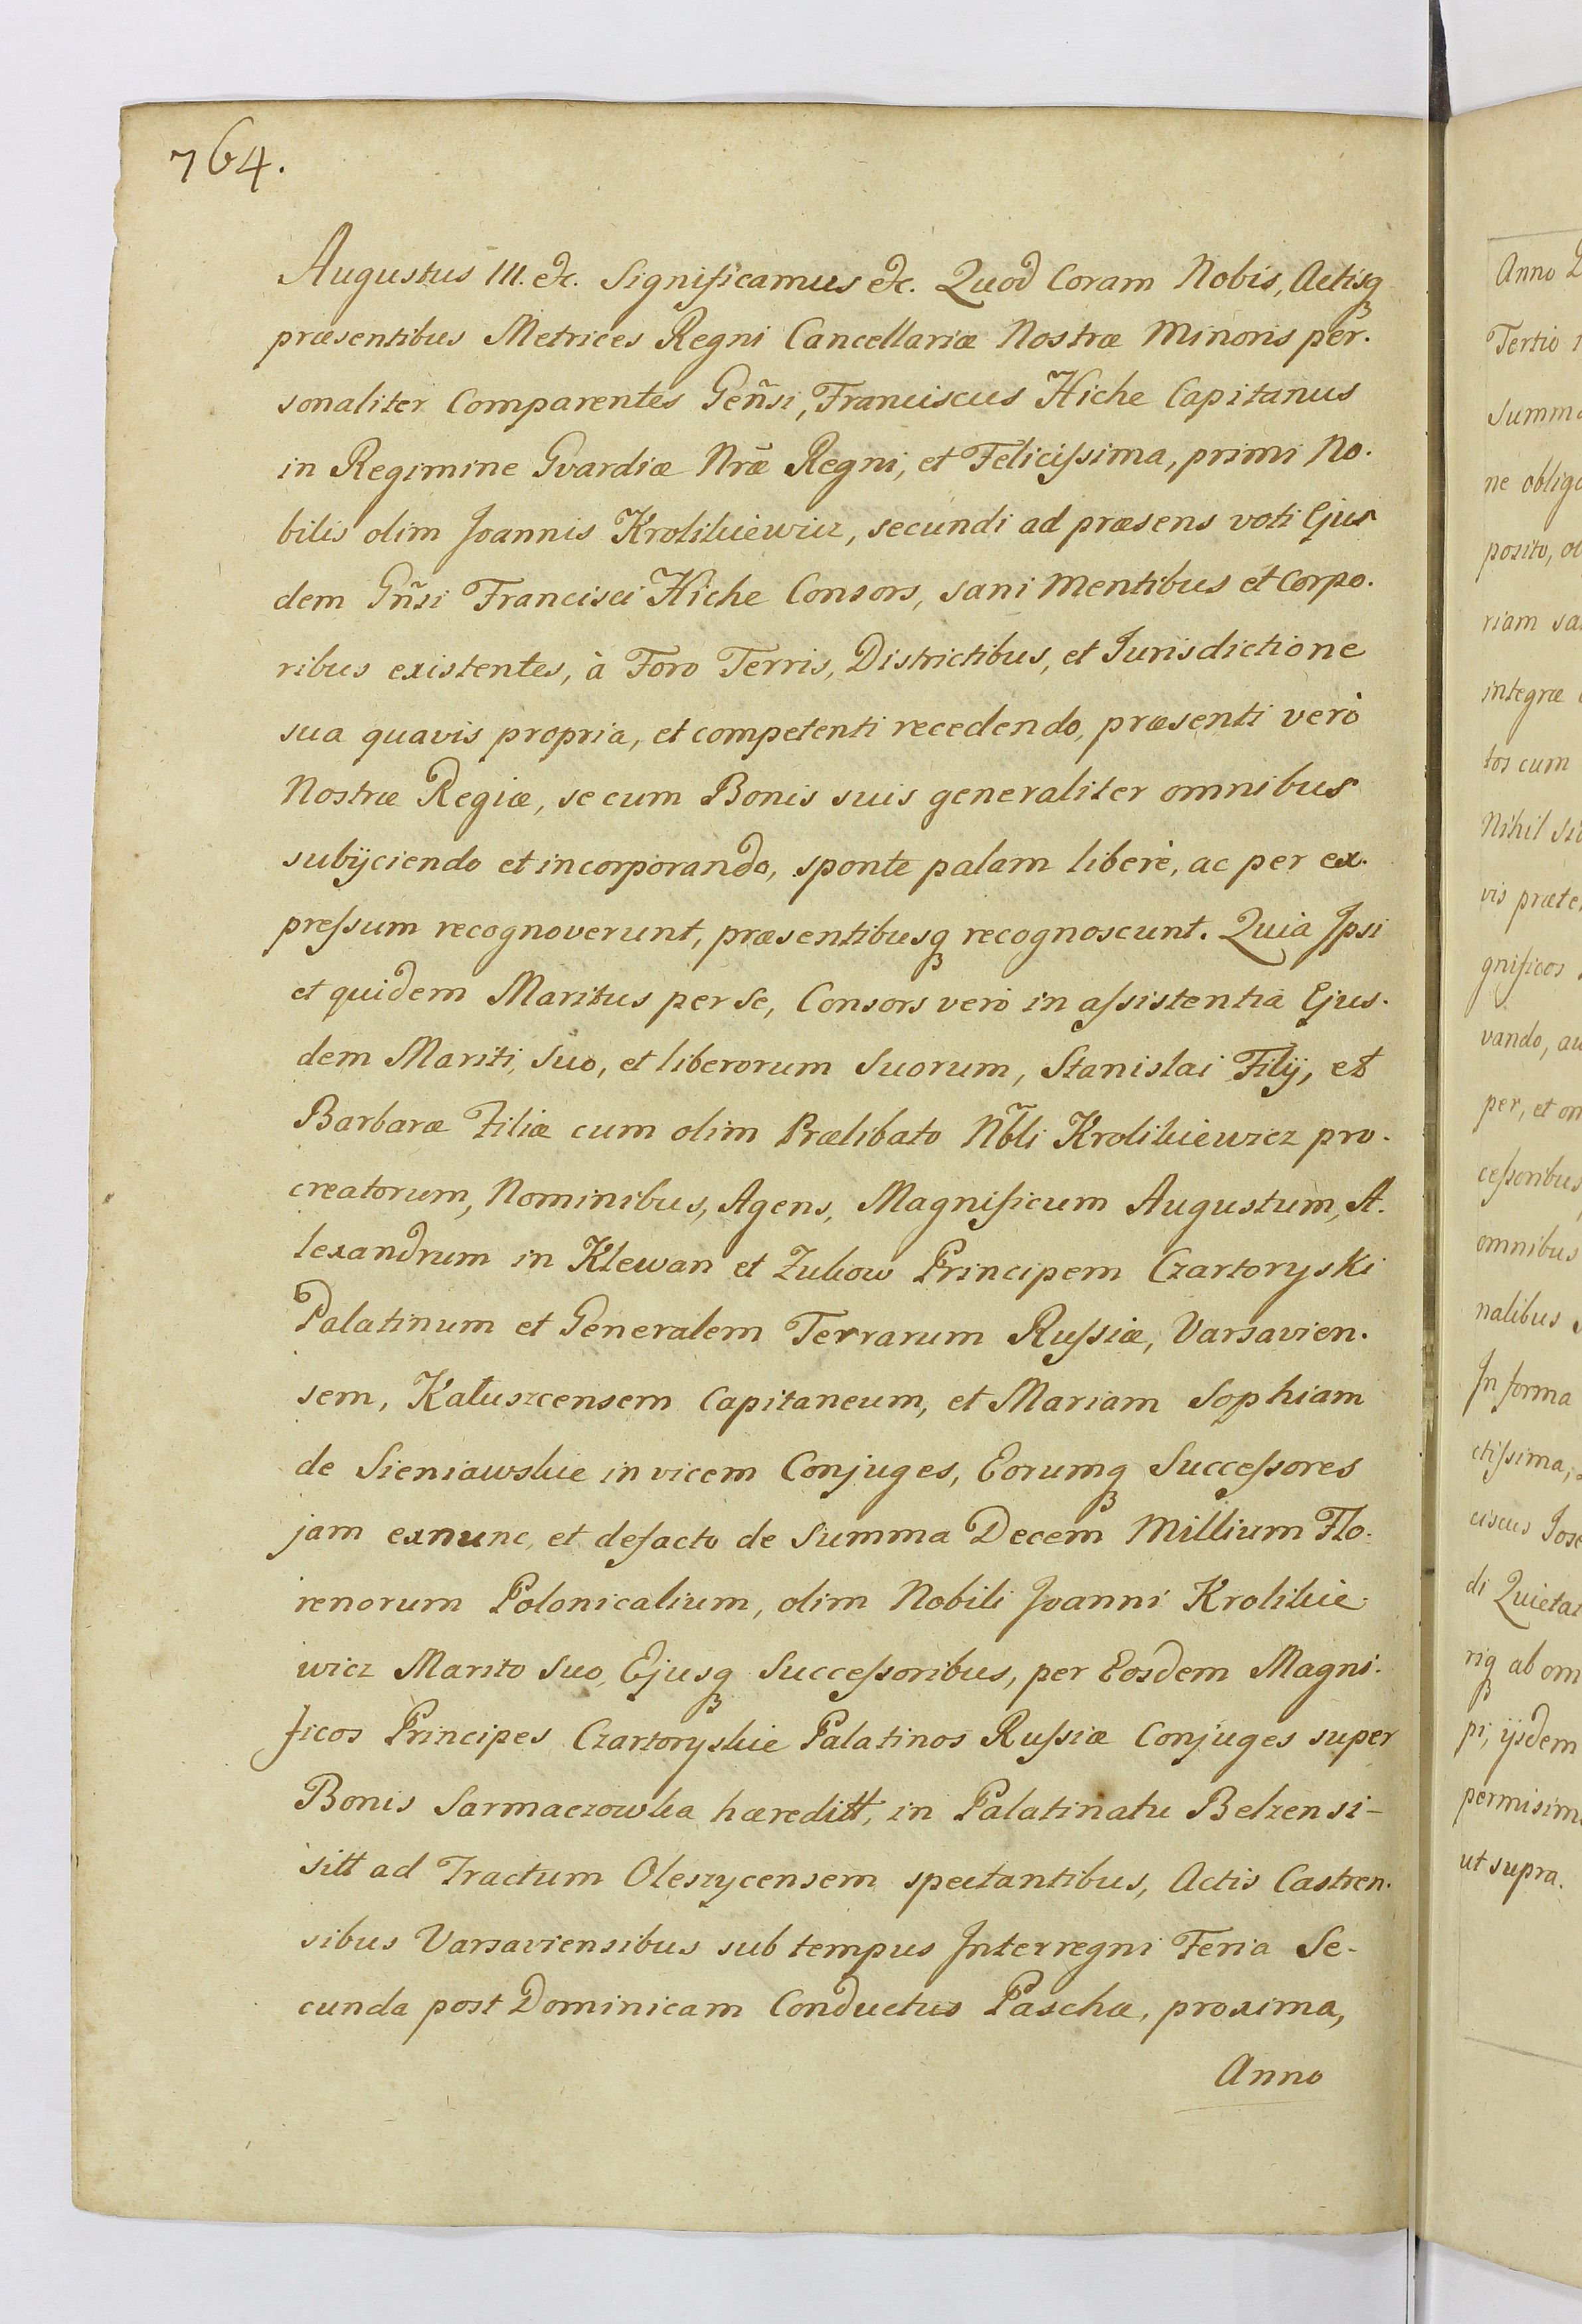 764.
Augustus III. etc. Significamus etc. Quod Coram Nobis, Actisq
præsentibus Metrices Regni Cancellariæ Nostræ Minoris per.
sonaliter Comparentes Geñsi, Franciscus Hiche Capitanus
in Regimine Gvardiæ Nræ̃ Regni, et Felicissima, primi No.
bilis olim Joannis Krolikiewicz, secundi ad præsens voti Ejus
dem Gñsi Francisci Hiche Consors, sani Mentibus et Corpo.
ribus existentes, à Foro Terris, Districtibus, et Jurisdictione
sua quavis propria, et competenti recedendo, præsenti verò
Nostræ Regiæ, se cum Bonis suis generaliter omnibus
subijciendo et incorporando, sponte palam liberè, ac per ex.
pressum recognoverunt, præsentibusq recognoscunt. Quia Ipsi
et quidem Maritus per Se, Consors verò in assistentia Ejus.
dem Mariti, Suo, et liberorum Suorum, Stanislai Filij, et
Barbaræ Filiæ cum olim Prælibato Nbl̃i Krolikiewicz pro.
creatorum, Nominibus, Agens, Magnificum Augustum, A.
lexandrum in Klewan et Zukow Principem Czartoryski
Palatinum et Generalem Terrarum Russiæ, Varsavien.
sem, Kałuszcensem Capitaneum, et Mariam Sophiam
de Sieniawskie in vicem Conjuges, Eorumq Successores
jam exnunc, et defacto de Summa Decem Millium Flo.
renorum Polonicalium, olim Nobili Joanni Krolikie.
wicz Marito Suo, Ejusq Successoribus, per Eosdem Magni.
ficos Principes Czartoryskie Palatinos Russiæ Conjuges super
Bonis Sarmaczowka hæreditt, in Palatinatu Belzensi-
sitt ad Tractum Oleszycensem spectantibus, Actis Castren.
sibus Varsaviensibus sub tempus Interregni Feria Se-
cunda post Dominicam Conductus Paschæ, proxima,
Anno
Anno
Tertio
Summa
ne
posito,
riam
integræ
tos cum
Nihil
vis
gnificos
vando,
per, et
cessoribus
omnibus
nalibus
In forma
ctissima,
ciscus
di
riq ab
pi, ijsdem
ut supra.